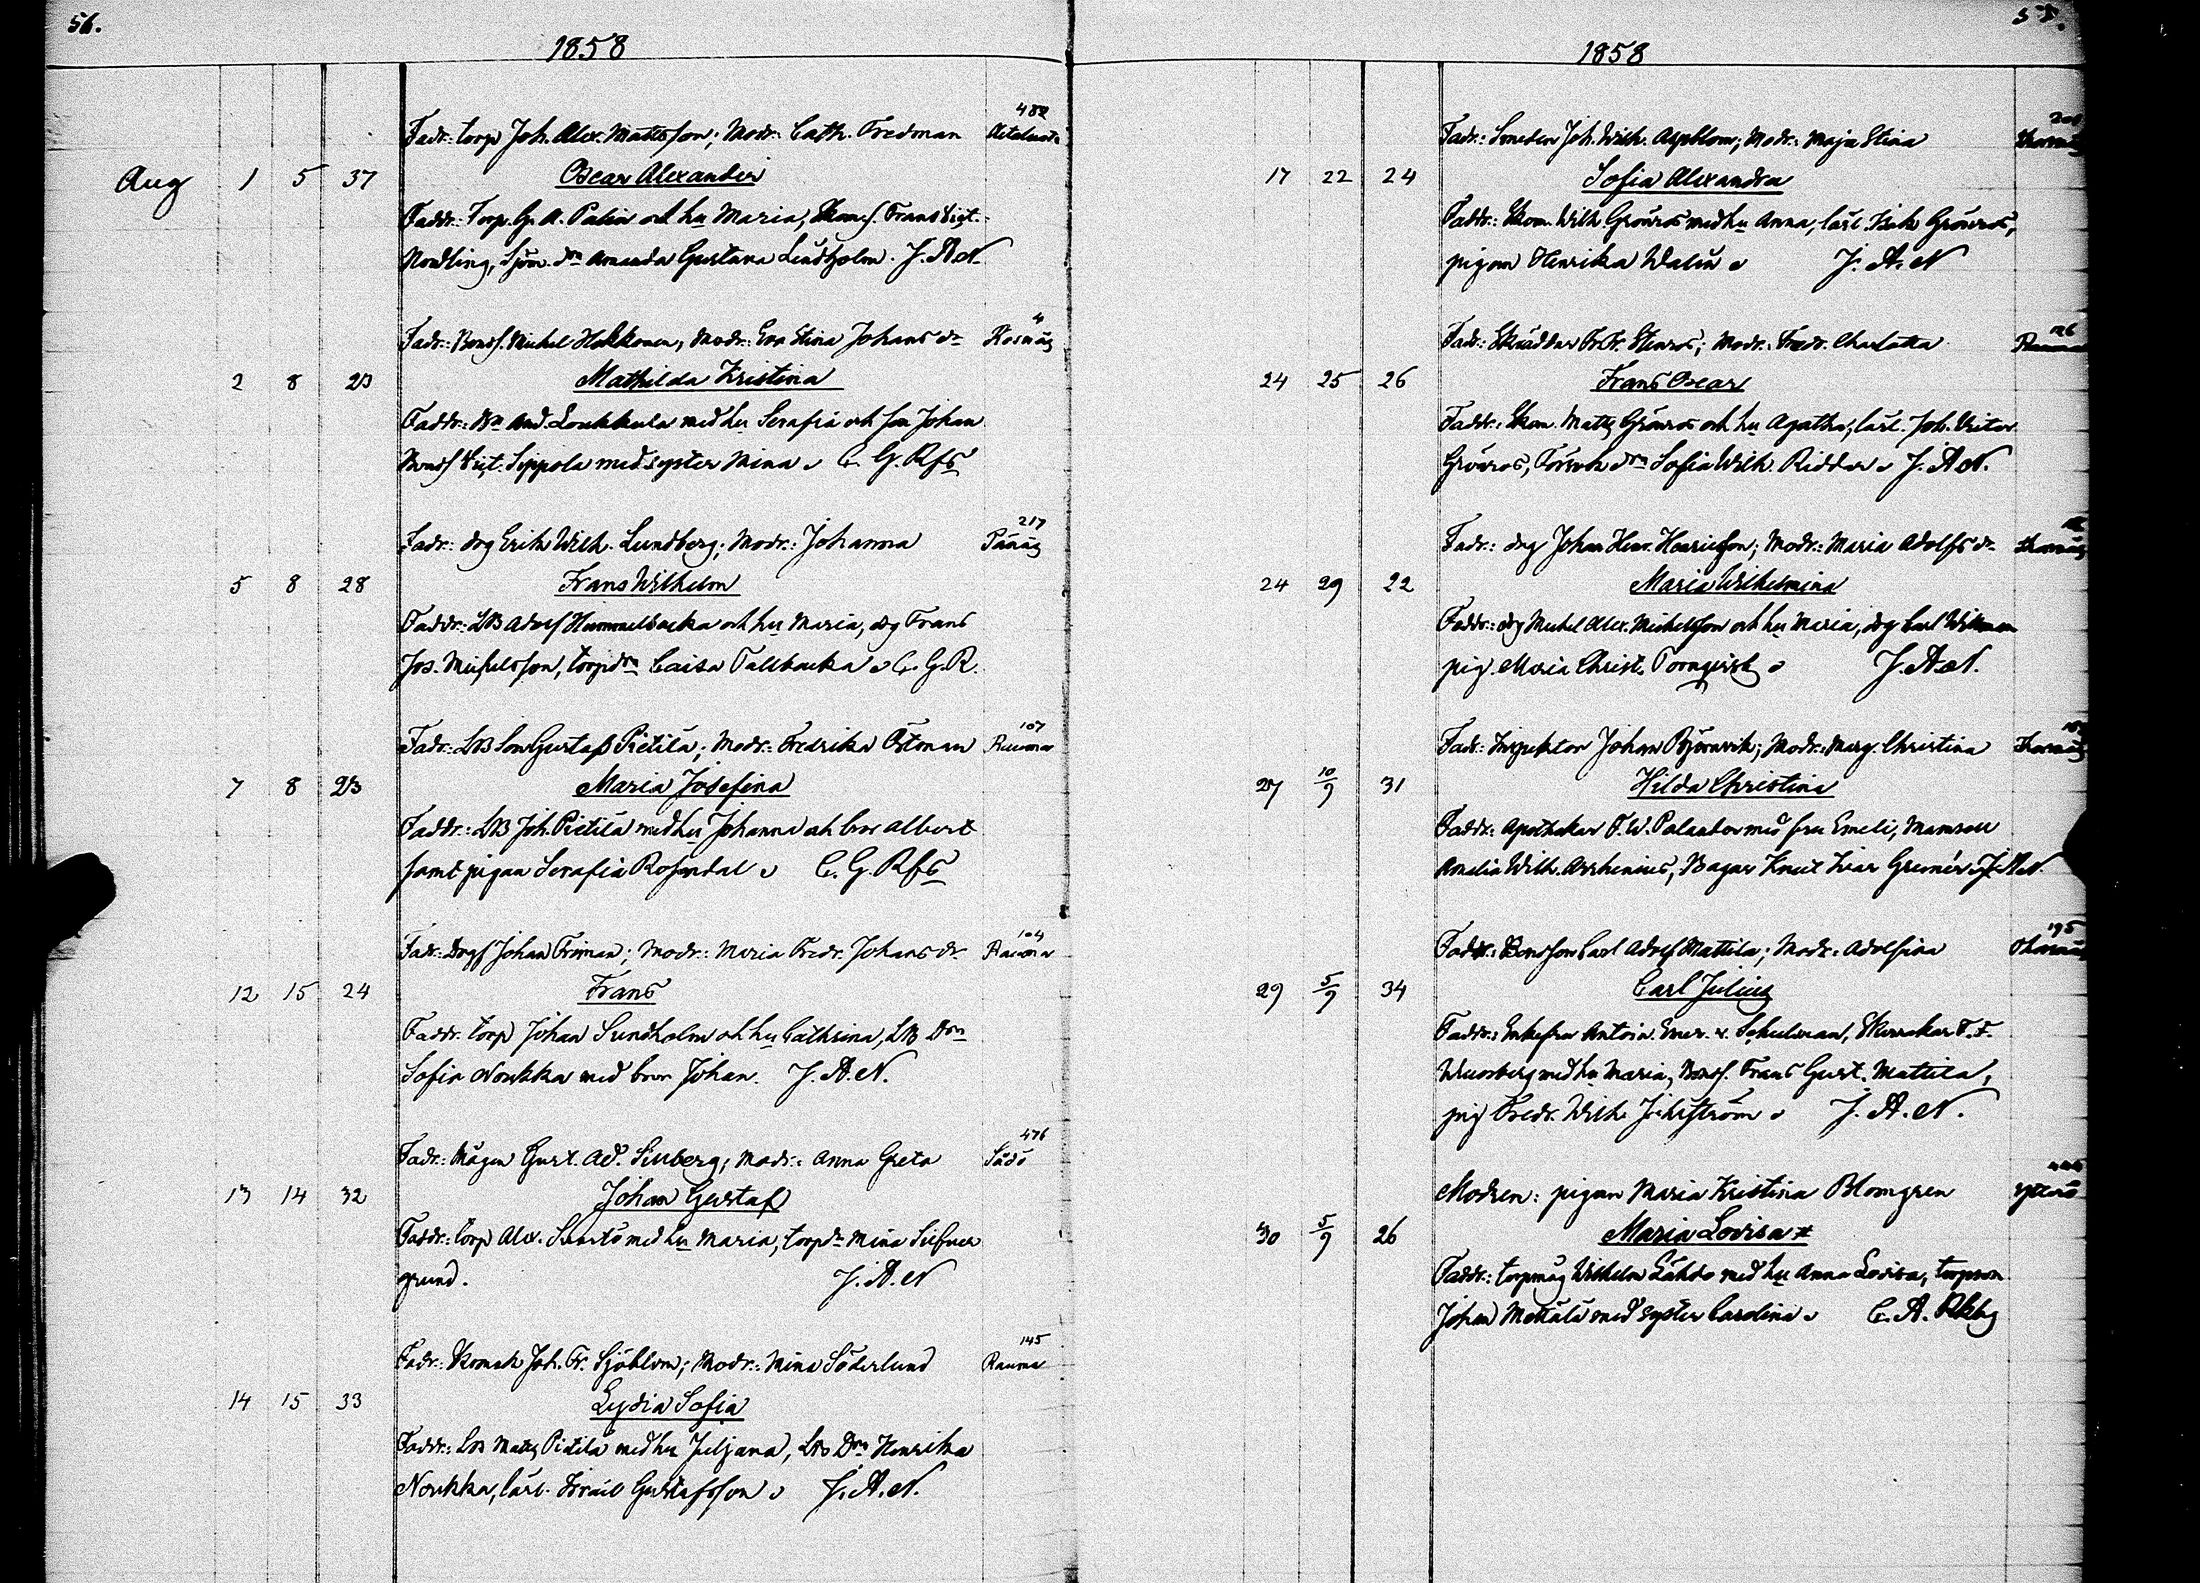 56.
1858
Fadr: torp Joh. Alex. Mattsson; Modr: Cath. Fredman 482
Aug 1 5 37 Oscar Alexander
Faddr: Torp. G. A. Palin och hu Maria, Skom. Frans Vict.
Nordling, Sjöm. dn Amanda Gustava Lindholm. J. A. N.
Fadr: Bonds. Michel Hakkonen, Modr: Eva Stina Johans dr 4
2 8 23 Mathilda Kristina
Faddr: And. Loukkula med hu Serafia och son Johan
Vict. Seppola med syster Mina C. G. Rfs
Fadr: drg Erik Wilh. Lundberg; Modr: Johanna 217
5 8 28 Frans Wilhelm
Faddr: LB Adolf Hummelbacka och hu Maria, drg Frans
Jos. Michelsson, torpdn Caisa Tallbacka C. G. R.
Fadr: LB Son Gustaf Pietilä; Modr: Fredrika Östman 107 Rauma
7 8 23 Maria Josefina
Faddr: LB Joh. Pietilä med hu Johanna och bror Albert
samt pigan Serafia Rosendal C. G. Rfs
Fadr: Johan Friman; Modr: Maria Fredr. Johans dr 104 Rauma
12 15 24 Frans
Faddr: torp Johan Sundholm och hu Cathrina, LB Drn
Sofia Noukka med bror Johan. J. A. N.
Fadr: Mågen Gust. Ad. Sinberg; Modr: Anna Greta 476
13 14 32 Johan Gustaf
Faddr: torp Alex. med hu Maria, torpdr Mina
grund. J. A. N
Fadr: Skomak Joh. Fr. Sjöblom; Modr: Mina Söderlund 145 Rauma
14 15 33 Lydia Sofia
Faddr: LB Matts Pietilä med hu Juljana, LB Drn Henrika
Noukka, lärl. Israel Gustafsson J. A. N.
1858
Fadr: Smeden Joh. Wilh. Aspblom; Modr: Maja Stina
17 22 24 Sofia Alexandra
Faddr: Skom. Wilh. Grönroos med hu Anna, lärl. Isak Grönroos,
pigan Henrika Walin J. A. N
Fadr: Skräddar Fr. Fr. Stenros; Modr: Fredr. Charlotta 126
24 25 26 Frans Oscar
Faddr: Skom. Matts Grönros och hu Agatha, lärl. Joh. Victor
Grönros, drn Sofia Wilh. Ridder J. A. N.
Fadr: drg Johan Henr. Henriksson; Modr: Maria Adolfs dr
24 29 22 Maria Wilhelmina
Faddr: drg Michel Alex. Michelsson och hu Maria, drg Carl Wikman
pig. Maria Christ. Tornqvist J. A. N.
Fadr: Inspektor Johan Björnvik; Modr: Marg. Christina
27 10/9 31 Hilda Christina
Faddr: Apothekar F. W. Palander med fru Emeli, Mamsell
Amelia Wilh. Arrhenius, Bagar Knut Ivar Grenér J. A. N.
Fadr: Bondson Carl Adolf Mattila; Modr: Adolfina 195
29 5/9 34 Carl Julius
Faddr: Enkefru Antoin. Emer. v. Schulman, F. F.
med hu Maria, Bonds. Frans Gust. Mattila,
pig Fredr. Wilh. J. A. N.
Modren: pigan Maria Kristina Blomgren
30 5/9 26 Maria Lovisa #
Faddr: torpmåg Wilhelm Lähde med hu Anna Lovisa, torpson
Johan Mattila med syster Carolina C. A.